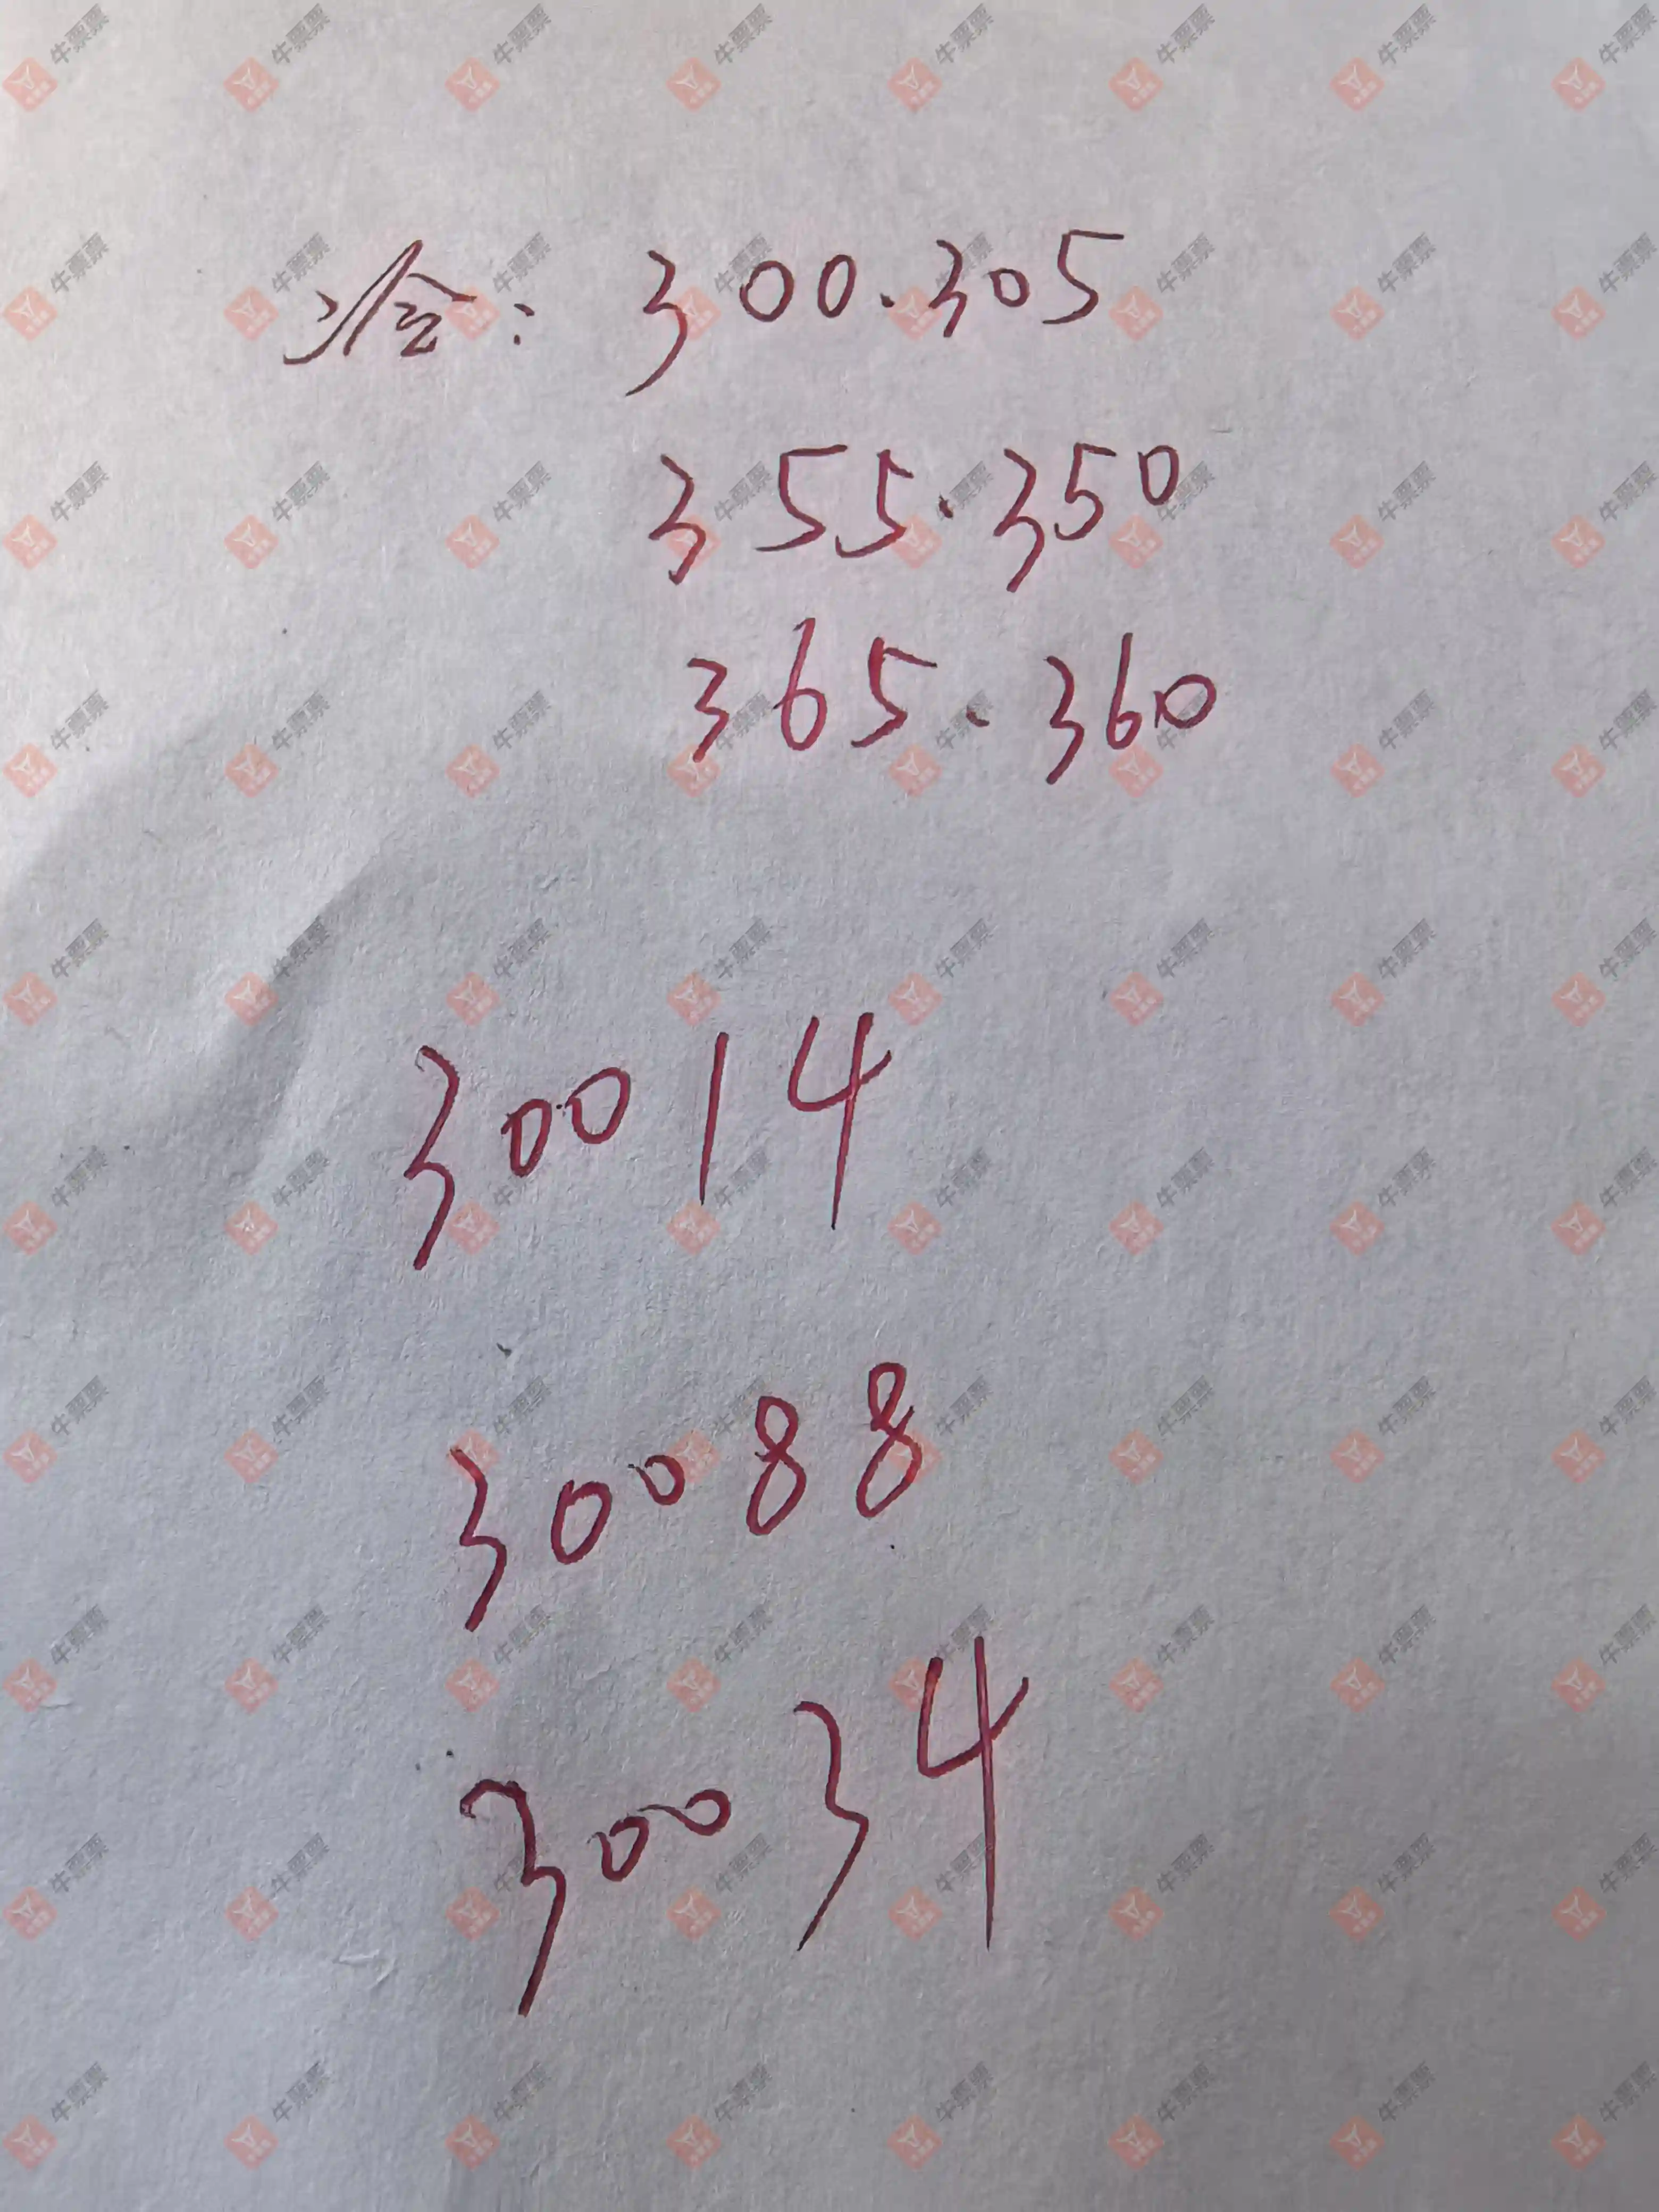 冷：300.305
355.350
365.360
30014
30088
30034
牛票票